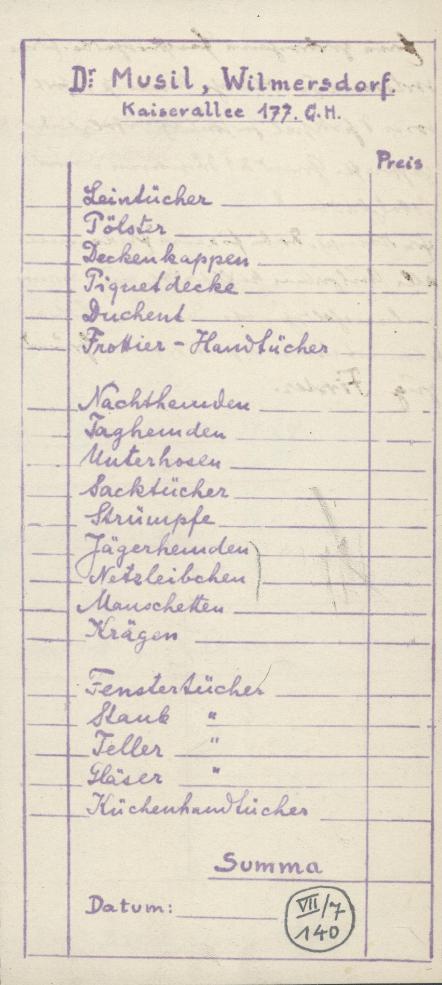 Dr Musil, Wilmersdorf.
Kaiserallee 177. G.H.
Preis
Leintücher
Pölster
Deckenkappen
Piquetdecke
Duchent
Frottier - Handtücher
Nachthemden
Taghemden
Unterhosen
Sacktücher
Strümpfe
Jägerhemden
Netzleibchen
Manschetten
Krägen
Fenstertücher
Staub "
Teller "
Gläser "
Küchenhandtücher
Summa
Datum:
VII/7
140